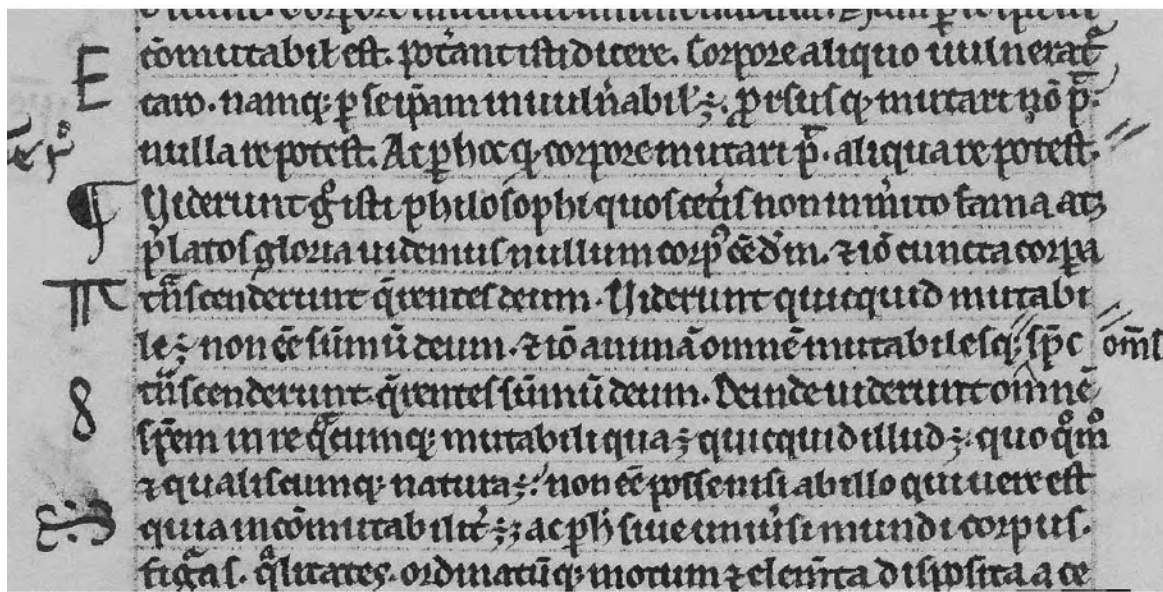 cōmutabił est. pot̄ant isti dicere. Corpore aliquo uulnerat̄
caro. namq; ꝑ seip̄am inuuln̄abił ⁊̄. ꝓrsus q̄ mutari nō p̄t.
nulla re potest. Ac ꝑ hoc q̄ corpore mutari p̄t. aliqua re potest.
Viderunt g̊ isti philosophi quos cet̄is non inm̄ito fama atq;
p̄latos gloria uidemus nullum corpꝰ ēē dm̄. ⁊ iō cuncta corpa
tn̄scenderunt q̄rentes deum. Viderunt quicquid mutabi
le ⁊̄ non ēē sūmū deum. ⁊ iō animā omnē mutabilesq; sp̄c om̄s
tn̄scenderunt q̄rentes sūmū deum. Deinde uiderunt omnē
sp̄em in re q̄cumq; mutabili qua ⁊̄ quicquid illud ⁊̄. quo q̊ m̊
⁊ qualiscumq; natura ⁊̄. non ēē posse nisi ab illo qui uere est
quia incōmutabilit̄ ⁊̄. ac ꝑ h̄ siue uniūsi mundi corpus.
figas. q̄litates. ordinatūq; motum ⁊ elem̄ta disposita a ce